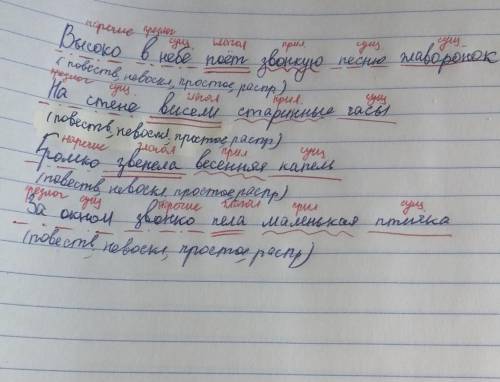 наречие предлог сущ. глагол прил. сущ сущ.
Высоко в небе поёт звонкую песню жаворонок
(повеств, невоскл, простое, распр)
предлог сущ. глагол прил. сущ
На стене висели старинные часы
(повеств, невоскл, простое, распр)
наречие глагол прил сущ
Громко звенела весенняя капель
(повеств, невоскл, простое, распр)
предлог сущ наречие глагол прил сущ
За окном звонко пела маленькая птичка
(повеств, невоскл, простое, распр)